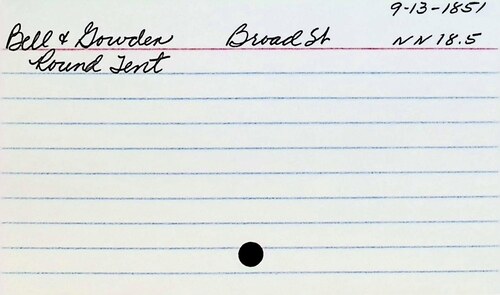 9-13-1851
Bell & Gowden Broad St NN 18.5
Round Tent